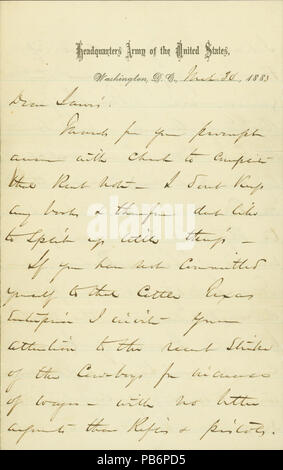 Headquarters Army of the United States,
Washington, D.C., 1883
Dear Lewis:
Thanks for your prompt
answer with check to complete
that Rent Note — I don't keep
any books & therefore don't like
to split up little things —
If you have not committed
yourself to that Cattle Texas
Enterprise I invite your
attention to the recent Strike
of the Cowboys for increase
of wages — with no better
arguments than Rifles & pistols.
alamy
Image ID: PB6PD5
www.alamy.com